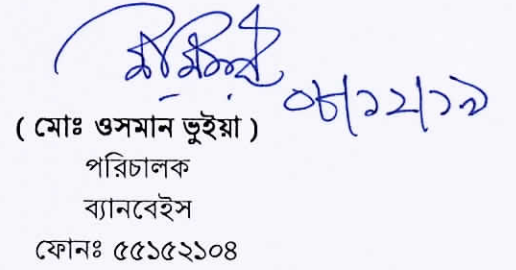 ০৮/১২/১৯
( মোঃ ওসমান ভুইয়া )
পরিচালক
ব্যানবেইস
ফোনঃ ৫৫১৫২১০৪